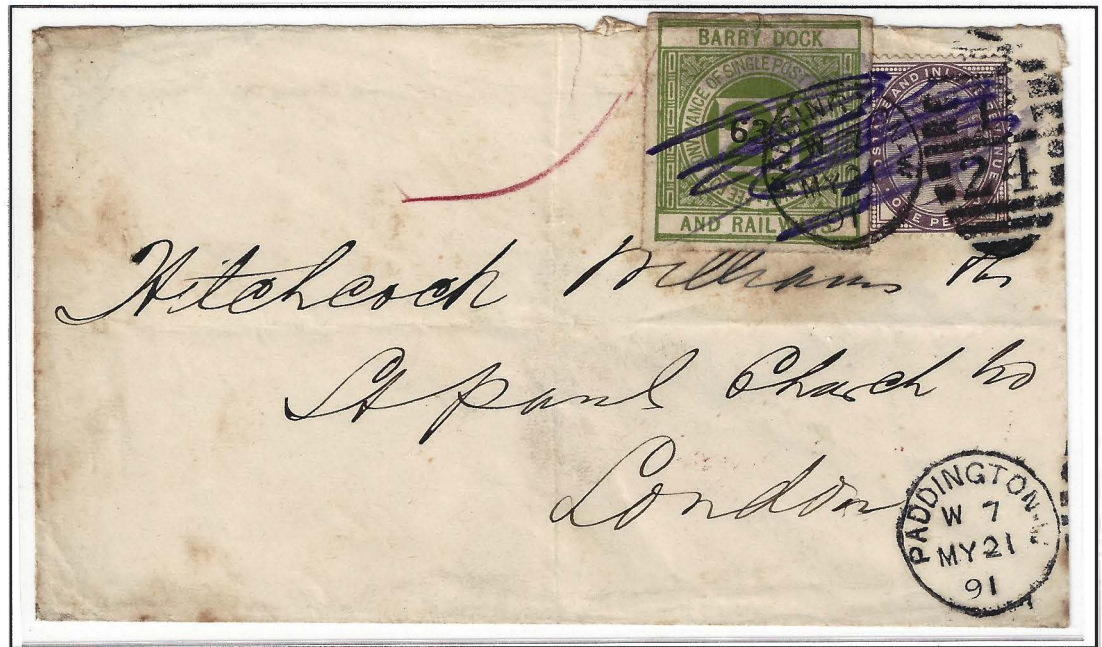 BARRY DOCK
CONVEYANCE OF SINGLE POST
FEE
63
AND RAILWAYS
POSTAGE AND INLAND REVENUE
ONE PENNY
PADDINGTON W
W 7
MY 21
91
1
24
Hitchcock Williams
St Paul Church
London
PADDINGTON W
W 7
MY 21
91